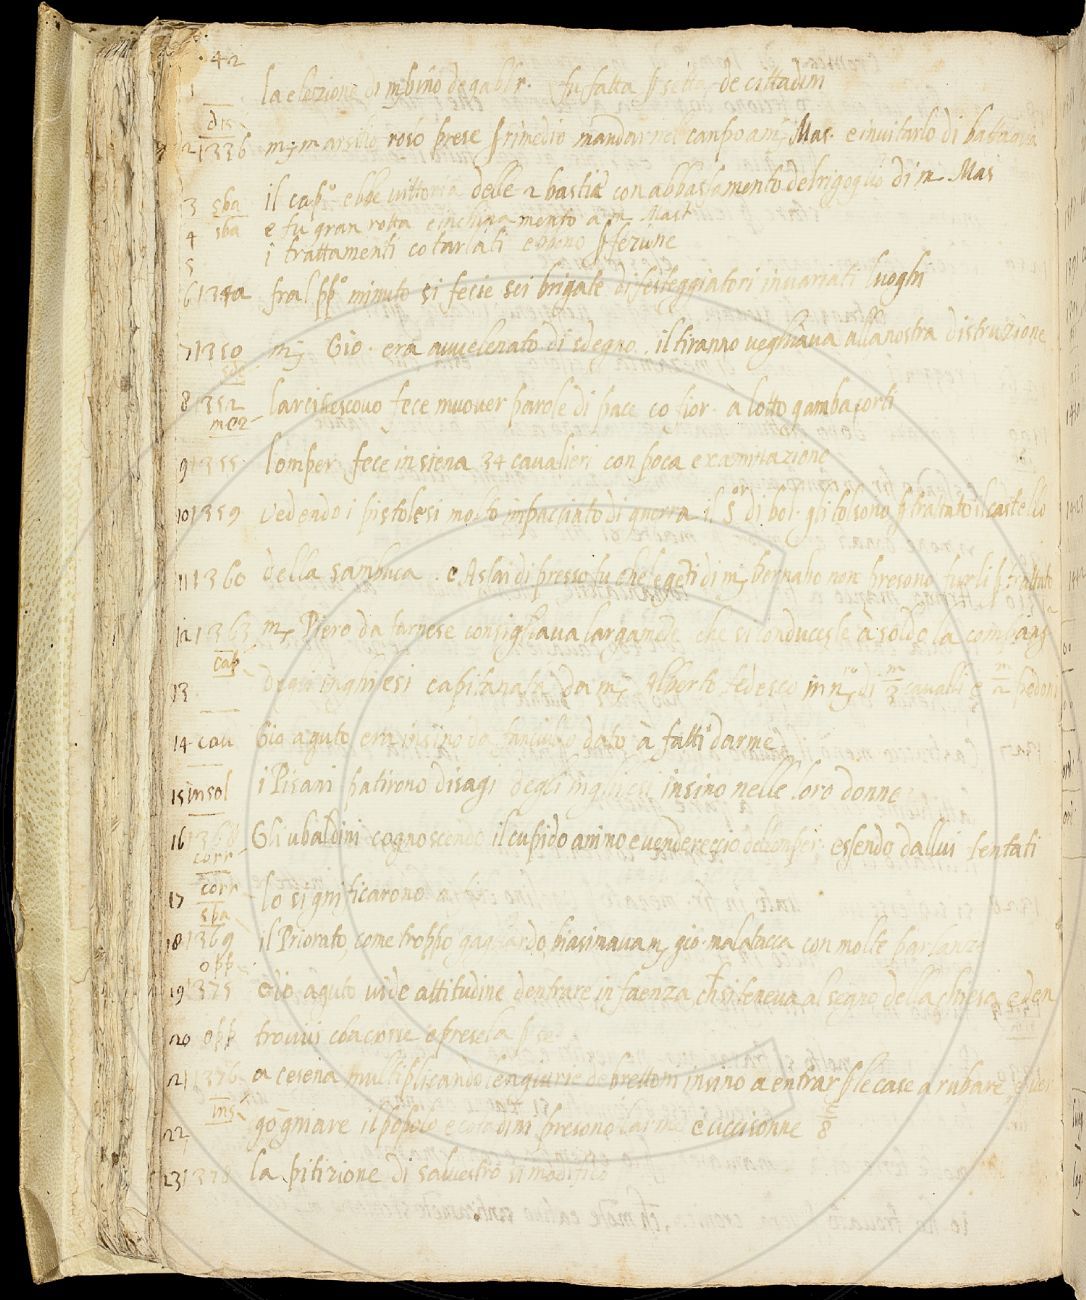 42
1 la elezione di mbino de gabbr. fu fatta p setta de cittadini
dis
2 1336 mr marsilo roso prese p rimedio mandar nel canpo a mr Mas. e invitarlo di battaglia
3 sba il cap.o ebbe vittoria delle 2 bastie con abbassamento del rigoglio di m Mas
4 sba e fu gran rotta e inchinamento a m Mast
5 i trattamenti co tarlati p fezune
6 1340 fral pp.o minuto si fecie sei brigate di festeggiatori in variati luoghi
7 1350 mr Gio. era avvelenato di sdegno. il tiranno veghiava alla nostra distruzione
8 1352 larcivescovo fece muover parole di pace co fior. à lotto gambacorti
mez
9 1355 lomper. fece in siena 34 cavalieri con poca examinazione
10 1359 vedendo i pistolesi molto impacciato di guerra il S.or di bol. gli tolsono p trattato il castello
11 1360 della sanbuca. e Assai di presso fu che le geti di mr bernabo non presono furlì p trattato
12 1363 mr Piero da farnese consigliava largamete che si conducesse à soldo la compang
cap
13 degli inghilesi capitanata da mr Alberto tedesco in n.ro di m/3 cavalli e m/2 pedoni
14 cau Gio aguto era insino da fanciullo dato à fatti darme
15 insol i Pisani patirono disagi degli inghilesi insino nelle loro donne
16 1368 Gli ubaldini cognoscendo il cupido animo e vendereccio dell omper. essendo dallui tentati
corr
17 corr lo significarono a
sba
18 1369 il Priorato, come troppo gagliardo, biasimava mr gio. malatacca con molte parlanz
opp
19 1375 Gio aguto vide attitudine dentrare in faenza ch si teneva al segno della chiesa e den
20 opp trovvi e presela p se
21 1376 a cesena multiplicando le ngiurie de brettoni insino a entrar p le case a rubare e ver
ins
22 gogniare il popolo e cotadini presono larme e uccisonne 8
23 1378 la pitizione di salvestro si modificò